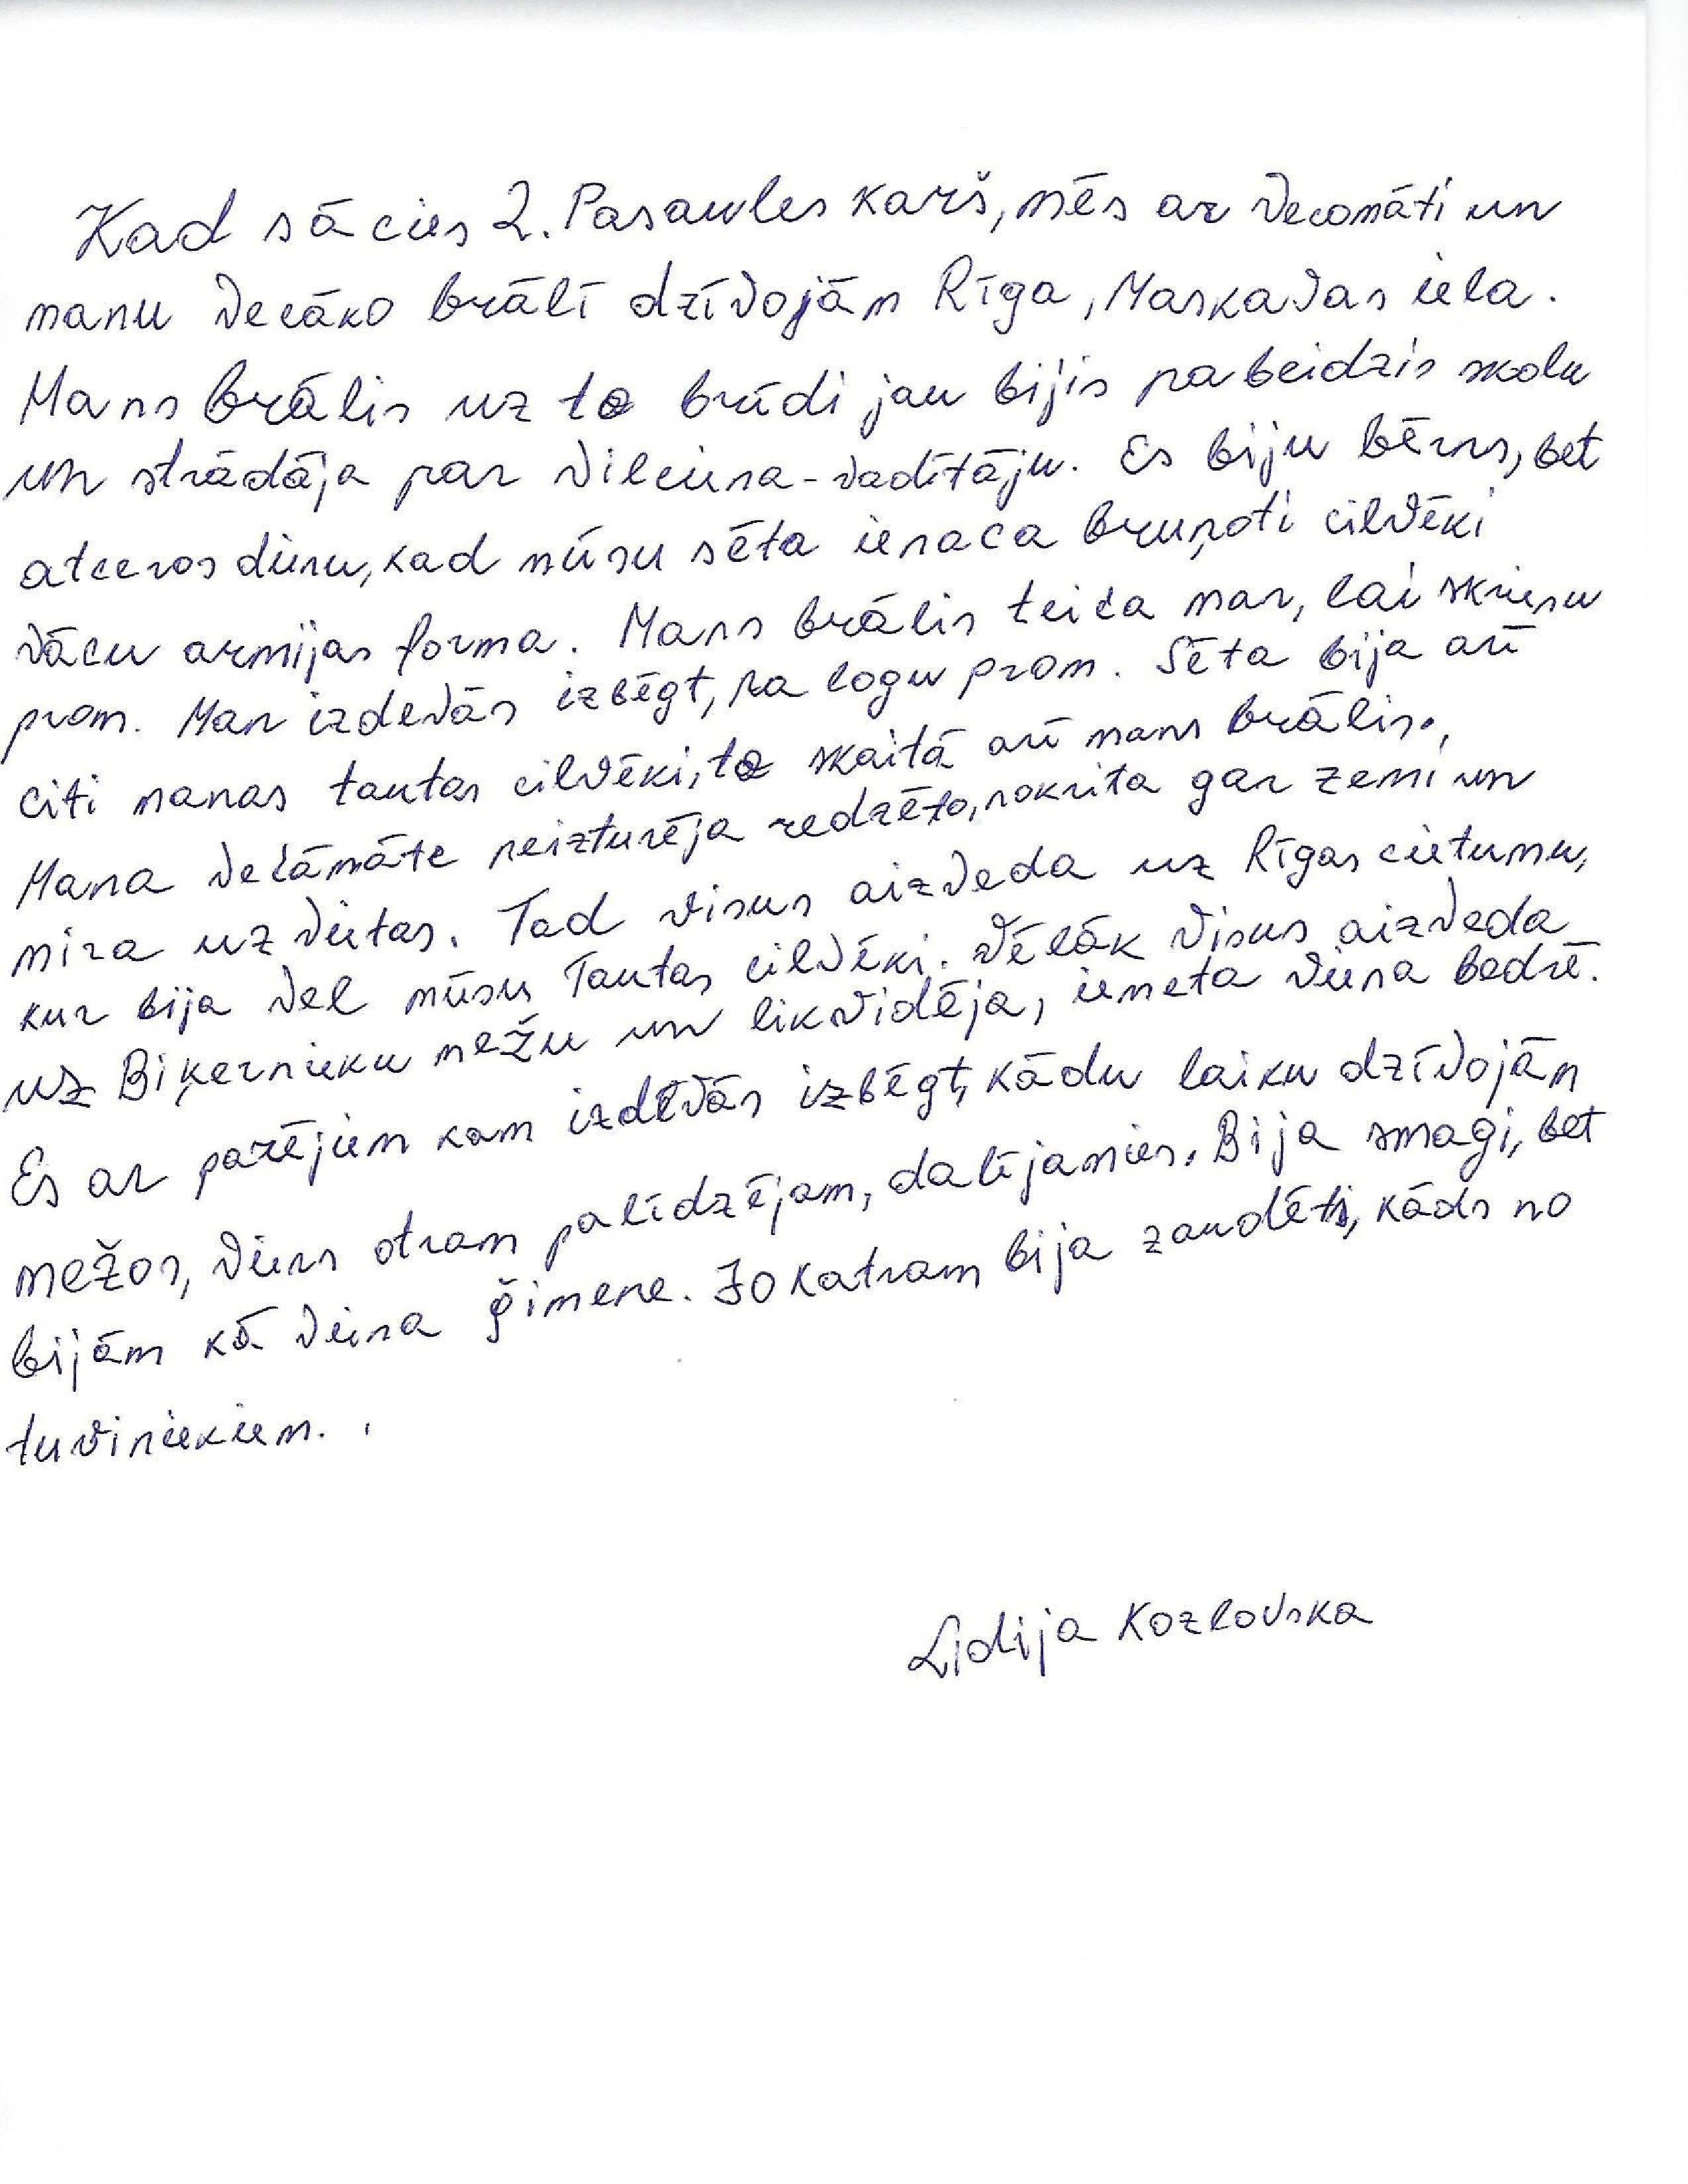 Kad sācies 2. Pasaules karš, mēs ar vecomāti un
manu vecāko brālī dzīvojām Rīga, Maskavas iela.
Mans brālis uz to brīdi jau bijis pabeidzis skolu
un strādāja par vilciena-vadītāju. Es biju bērns, bet
atceros dienu, kad mūsu sēta ienaca bruņoti cilvēki
vācu armijas forma. Mans brālis teica man, lai skrienu
prom. Man izdevās izbēgt, pa logu prom. Sēta bija arī
citi manas tautas cilvēki, to skaitā arī mans brālis.,
Mana vecāmāte neizturēja redzēto, nokrita gar zemi un
mira uz vietas. Tad visus aizveda uz Rīgas cietumu,
kur bija vel mūsu Tautas cilvēki. Vēlāk visus aizveda
uz Biķernieku mežu un likvidēja, iemeta viena bedrē.
Es ar parējiem kam izdēvās izbēgt, kādu laiku dzīvojām
mežos, viens otram palīdzējam, dalījamies. Bija smagi, bet
bijām kā viena ģimene. Jo katram bija zaudēts, kāds no
tuviniekiem. .
Lidija Kozlovska